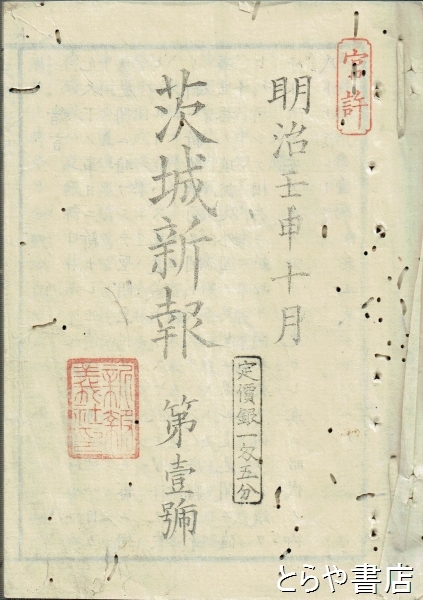 官許
明治壬申十月
茨城新報 第壹號
定價銀一匁五分
とらや書店